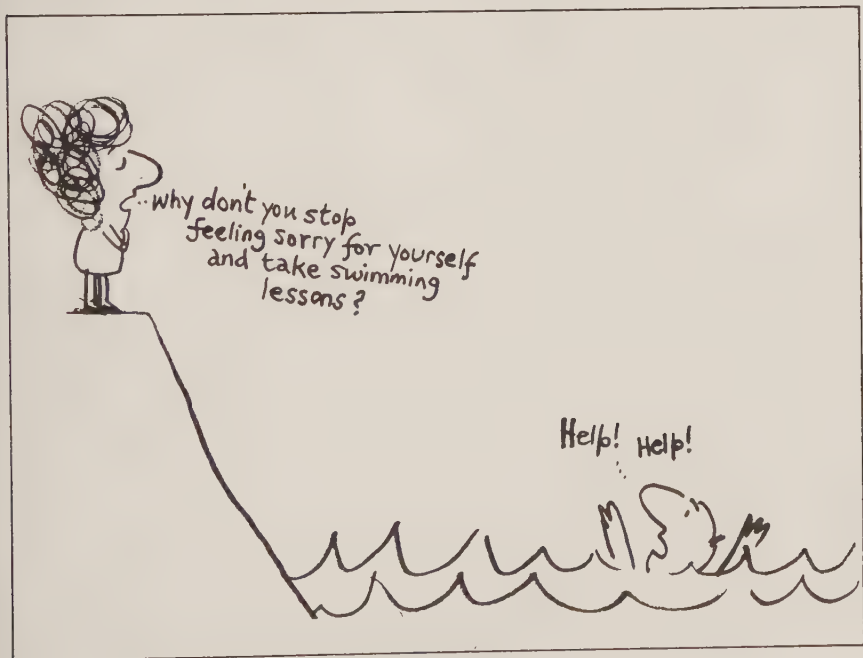 why don't you stop
feeling sorry for yourself
and take swimming
lessons?
Help! Help!